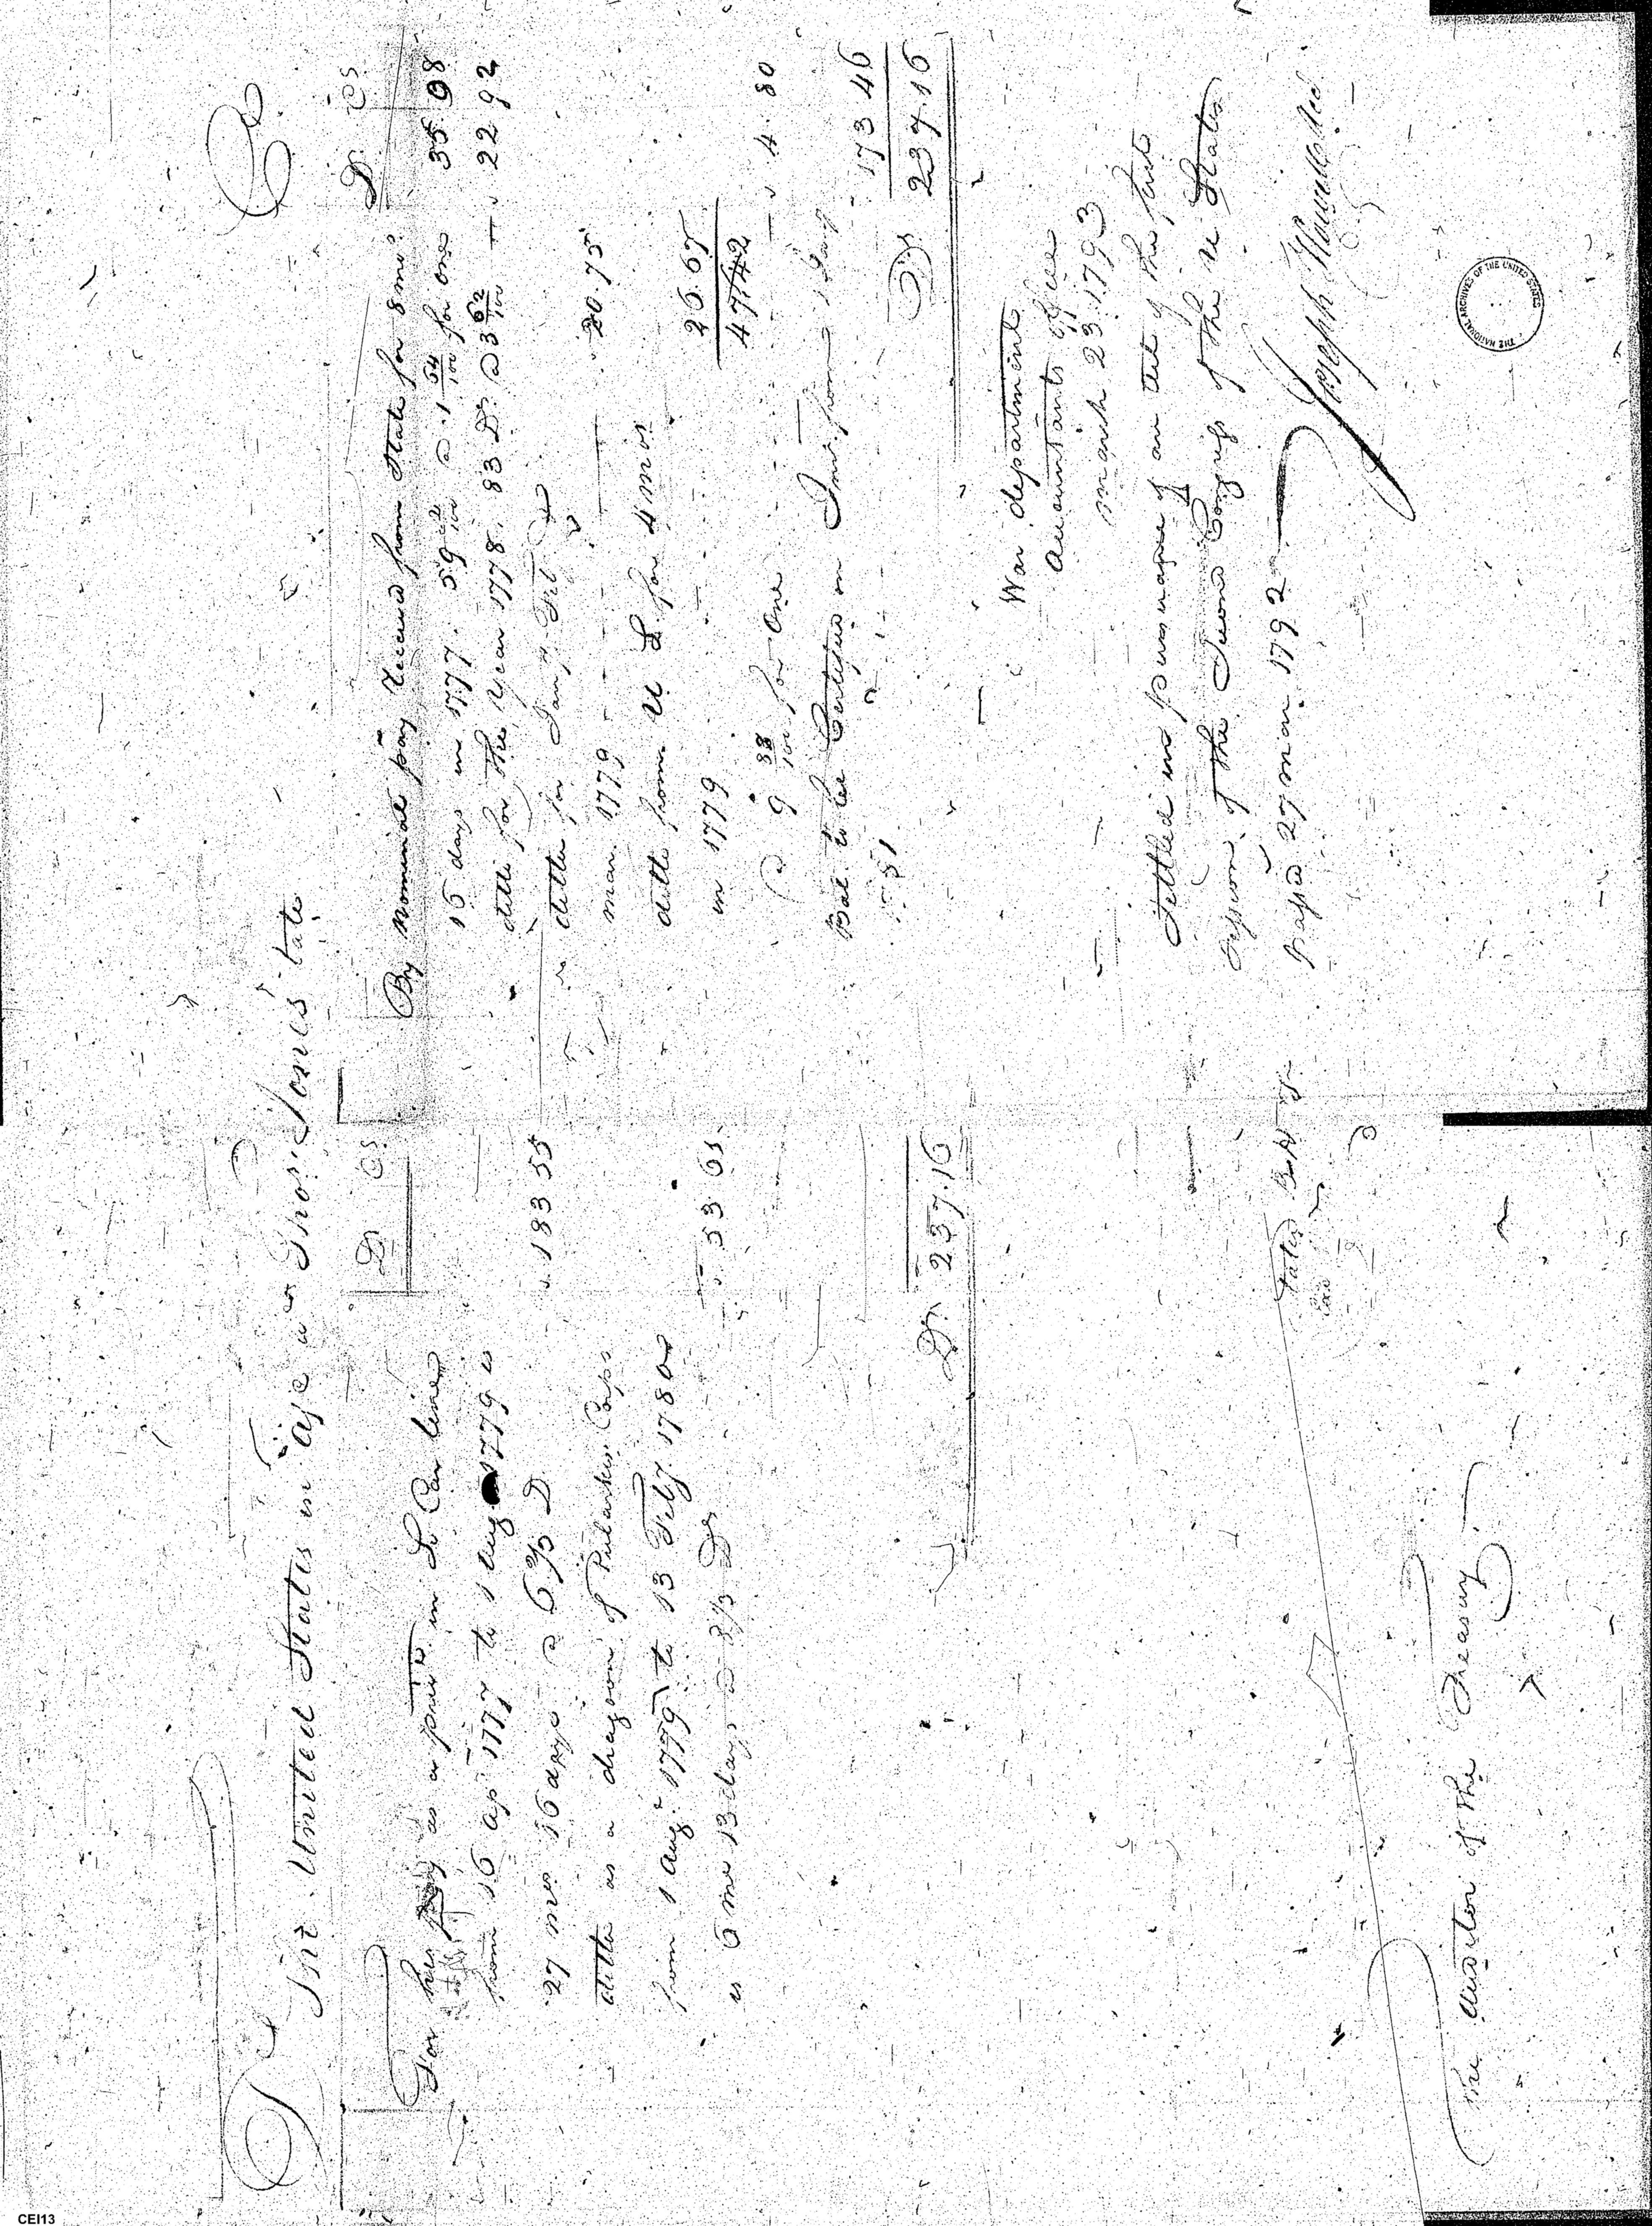 Dr
The United States in a/c w Thos. Jones late
Cr
D Cs.
For his pay as a priv.e in So Car line
from 16 ap 1777 to 1 Aug 1779 is
27 mos 16 days @ 6 2/3 D 183 55
ditto as a dragoon of Pulaskis Corps
from 1 Aug.t 1779 to 13 Feby. 1780
is 6 mo 13 days @ 8 1/3 Ds 53 61
Ds. 237.16
D Cs.
By nominal pay received from State for 8 mos.
16 days in 1777. 59 @ 1 54/100 for one 35 98
ditto for the Year 1778. 83 Ds. @ 3 62/100 22 92
ditto for Jany. Feb &
mar. 1779 20.75
ditto from U S for 4 mos
in 1779 26.67
47.42
@ 9 88/100 for One 4.80
Bal. to be Certified on Int. from 1 Jany
81
173 46
Ds. 237.16
War department
Accountants office
march 23. 1793
Settled in pursuance of an act of the first
session of the Second Congress of the U States
passed 27 mar 1792
Joseph Howell
The Auditor of the Treasury
THE NATIONAL ARCHIVES OF THE UNITED STATES
CEI13